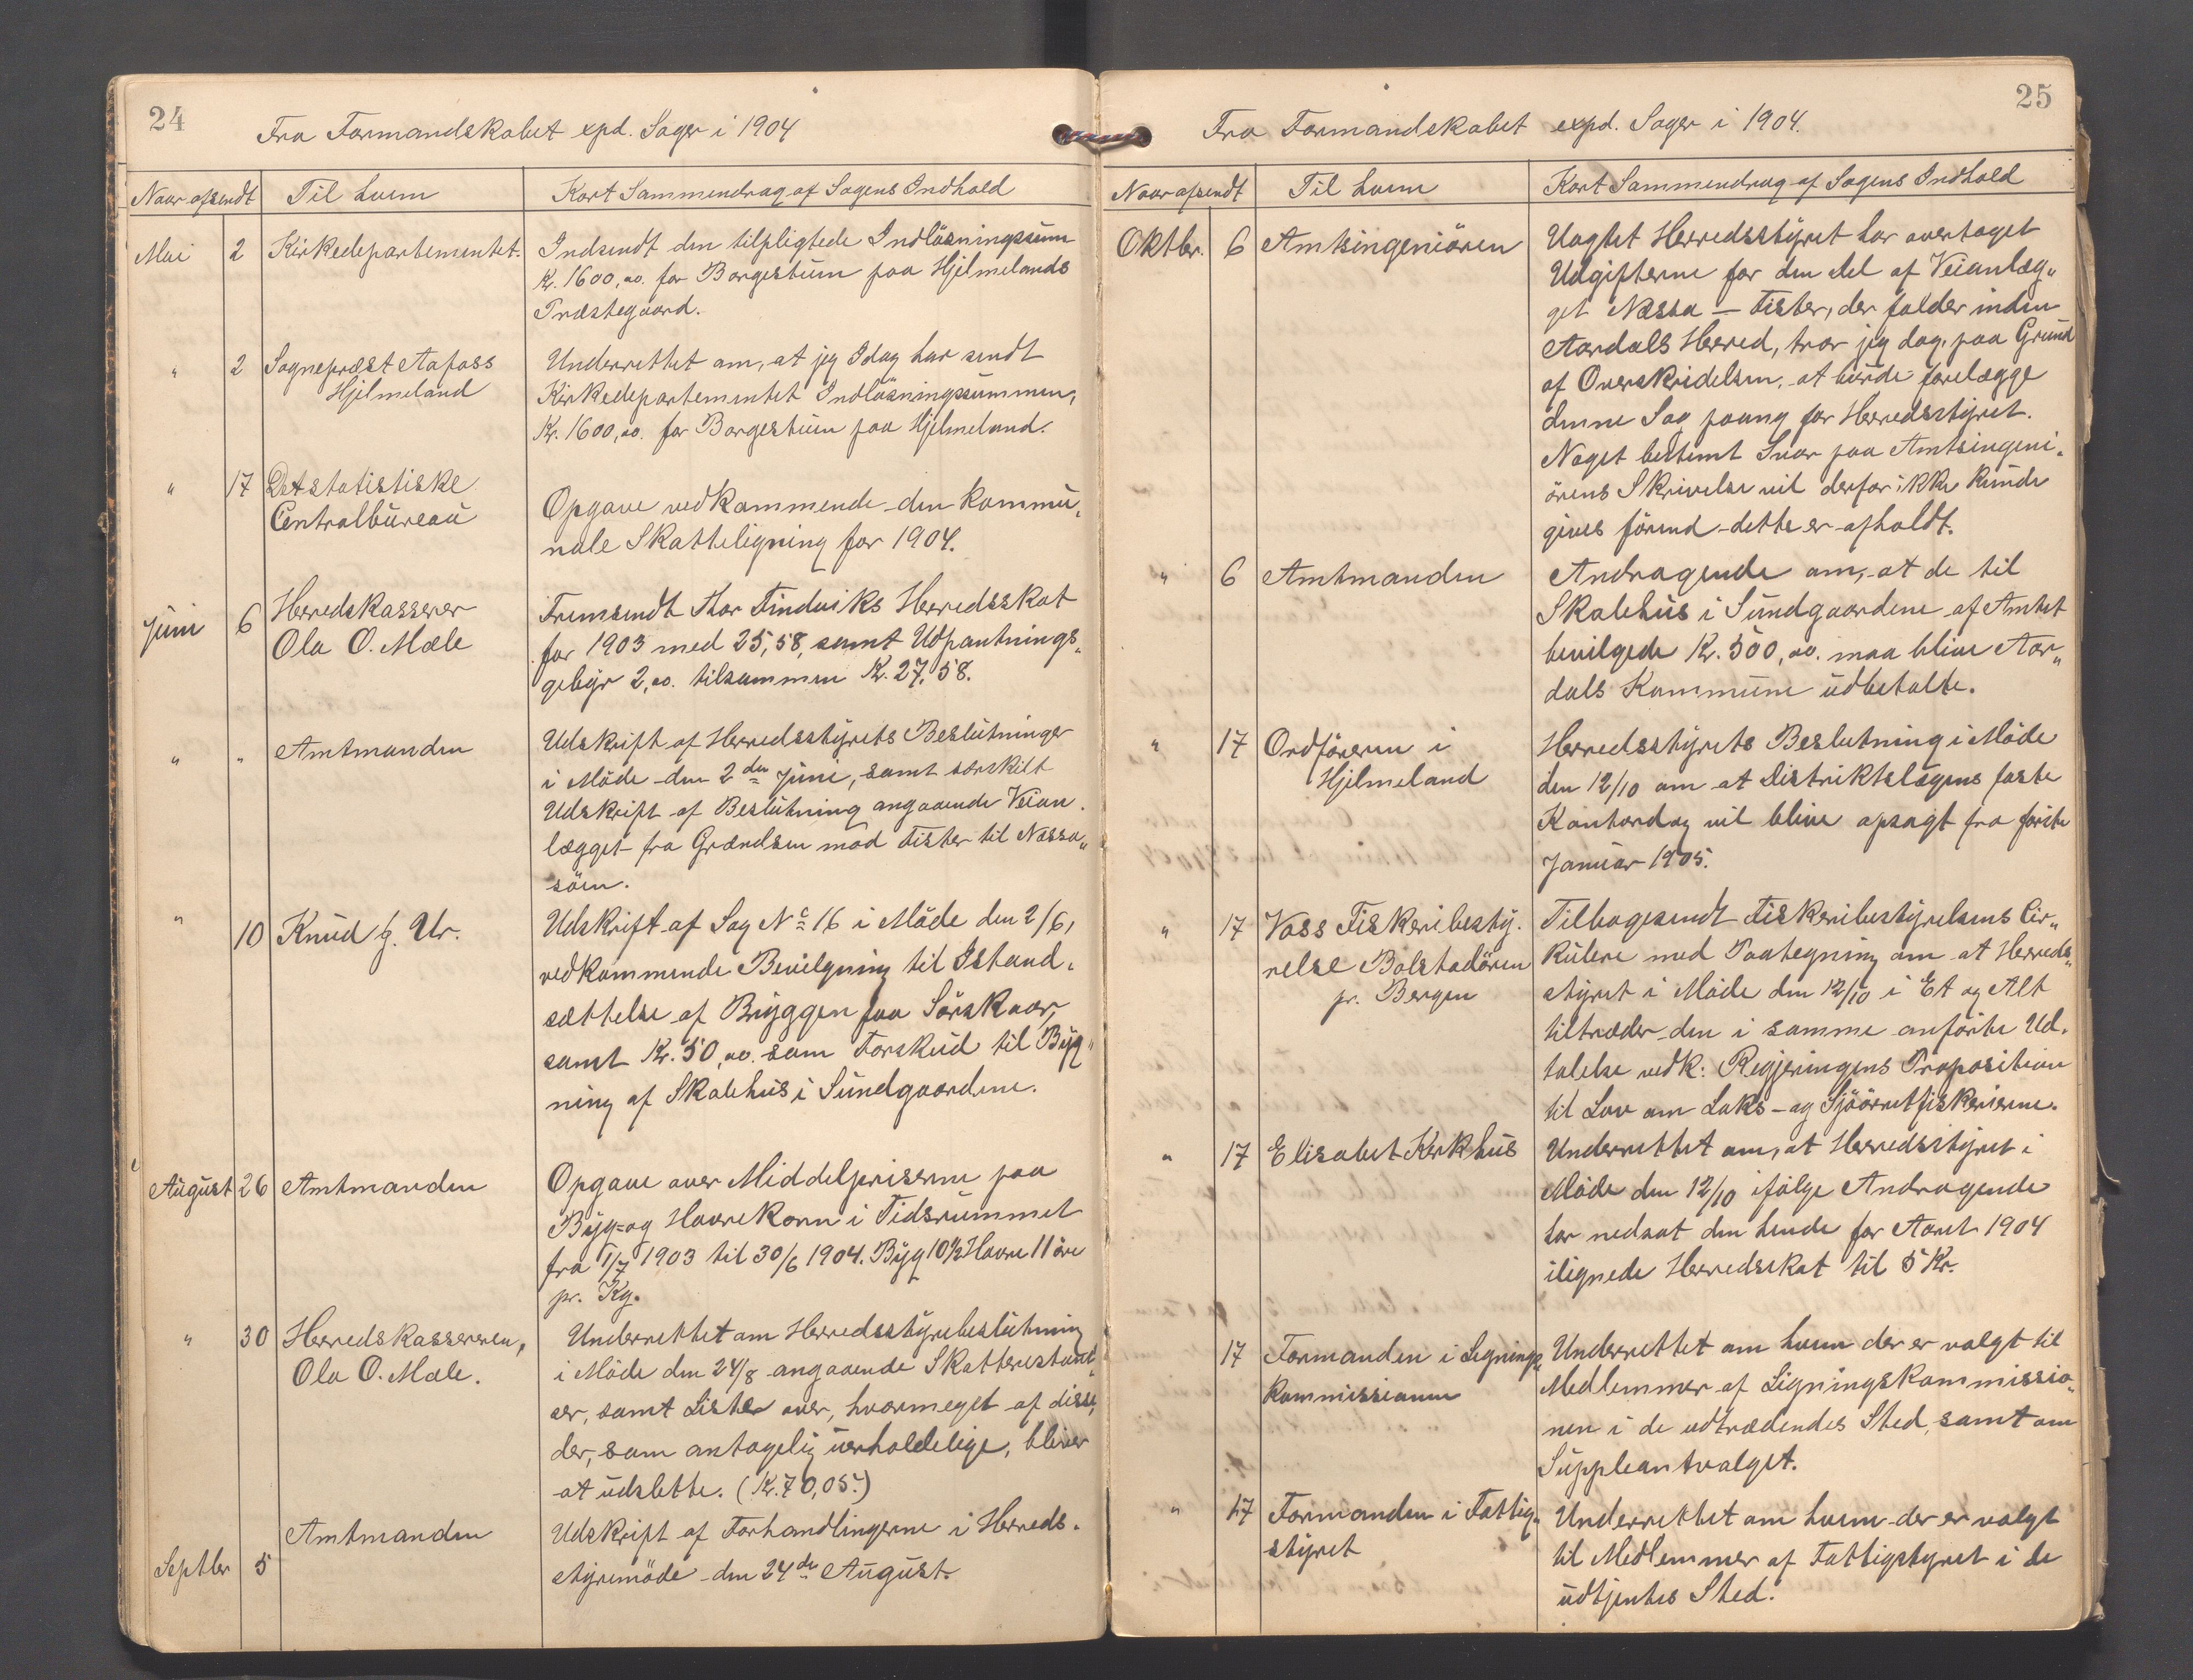 24
Fra Formandskabet expd. Sager i 1904
Naar afsendt Til hvem Kort Sammendrag af Sagens Indhold
Mai 2 Kirkedepartementet. Indsendt den tilpligtede Indløsningssum
Kr. 1600,00. for Borgestuen paa Hjelmelands
Præstegaard.
" 2 Sognepræst Aafoss Underrettet om, at jeg Idag har sendt
Hjelmeland Kirkedepartementet Indløsningssummen,
Kr. 1600,00. for Borgestuen paa Hjelmeland.
" 17 Det statistiske
Centralbureau Opgave vedkommende den kommu„
nale Skatteligning for 1904.
Juni 6 Herredskasserer Fremsendt Thor Tindviks Herredsskat
Ola O. Mæle for 1903 med 25,58, samt Udpantnings„
gebyr 2,00. tilsammen Kr. 27,58.
" " Amtmanden Udskrift af Herredsstyrets Beslutninger
i Møde den 2den Juni, samt særskilt
Udskrift af Beslutning angaaende Veian„
lægget fra Grændsen mod Fister til Nessa„
søen.
" 10 Knud G. Ur. Udskrift af Sag No 16 i Møde den 2/6,
vedkommende Bevilgning til Istand„
sættelse af Bryggen paa Sørskaar,
samt Kr. 50,00. som Forskud til Byg„
ning af Skolehus i Sundgaardene.
August 26 Amtmanden Opgave over Middelpriserne paa
Byg- og Havrekorn i Tidsrummet
fra 1/7 1903 til 30/6 1904. Byg 10½ Havre 11 øre
pr. Kg.
" 30 Herredskassereren, Underrettet om Herredsstyrebeslutning
Ola O. Mæle. i Møde den 24/8 angaaende Skatterestant„
ser, samt Lister over, hvormeget af disse,
der, som antagelig uerholdelige, bliver
at udslette. (Kr. 70,05.)
Amtmanden Udskrift af Forhandlingerne i Herreds„
Septbr 5 styremøde den 24de August.
25
Fra Formandskabet expd. Sager i 1904.
Naar afsendt Til hvem Kort Sammendrag af Sagens Indhold
Oktbr. 6 Amtsingeniøren Uagtet Herredsstyret har overtaget
Udgifterne for den Del af Veianlæg„
get Nessa – Fister, der falder inden
Aardals Herred, tror jeg dog, paa Grund
af Overskridelsen, at burde forelægge
denne Sag paany for Herredsstyret.
Noget bestemt Svar paa Amtsingeni„
ørens Skrivelse vil derfor ikke kunde
gives førend dette er afholdt.
" 6 Amtmanden Andragende om, at de til
Skolehus i Sundgaardene af Amtet
bevilgede Kr. 500,00. maa blive Aar„
dals Kommune udbetalte.
" 17 Ordføreren i Herredsstyrets Beslutning i Møde
Hjelmeland den 12/10 om at Distriktslægens faste
Kontordag vil blive opsagt fra første
Januar 1905.
" 17 Voss Fiskeribesty„ Tilbagesendt Fiskeribestyrelsens Cir„
relse Bolstadøren kulere med Paategning om at Herreds„
pr. Bergen styret i Møde den 12/10 i Et og Alt
tiltræder den i samme anførte Ud„
talelse vedk: Regjeringens Proposition
til Lov om Laks- og Sjøørretfiskerierne.
" 17 Elisabet Kirkhus Underrettet om, at Herredsstyret i
Møde den 12/10 ifølge Andragende
har nedsat den hende for Aaret 1904
ilignede Herredsskat til 5 Kr.
17 Formanden i Lignings„ Underrettet om hvem der er valgt til
kommissionen Medlemmer af Ligningskommissio„
nen i de udtrædendes Sted, samt om
Suppleantvalget.
" 17 Formanden i Fattig„ Underrettet om hvem der er valgt
styret til Medlemmer af Fattigstyret i de
udtjentes Sted.